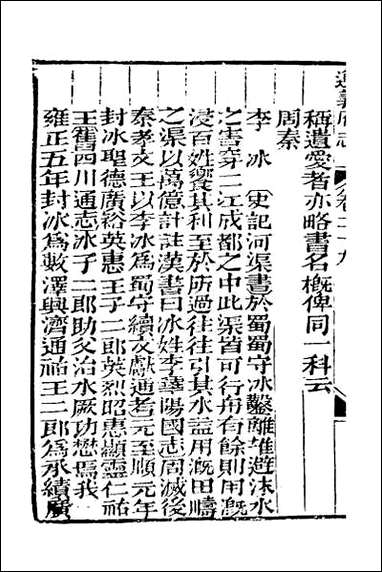 遵義府志 卷二十九
稱遺愛者亦略書名槪俾同一科云
周秦
李 冰 史記河渠書於蜀蜀守冰鑿離堆避沫水
之害穿二江成都之中此渠皆可行舟有餘則用漑
浸百姓饗其利至於所過往往引其水益用漑田疇
之渠以萬億計註漢書曰冰姓李華陽國志周滅後
秦孝文王以李冰爲蜀守續文獻通考元至順元年
封冰聖德廣裕英惠王子二郎英烈昭惠顯靈仁祐
王舊四川通志冰子二郎助父治水厥功懋焉我
雍正五年封冰爲敷澤興濟通祐王二郎爲承績廣